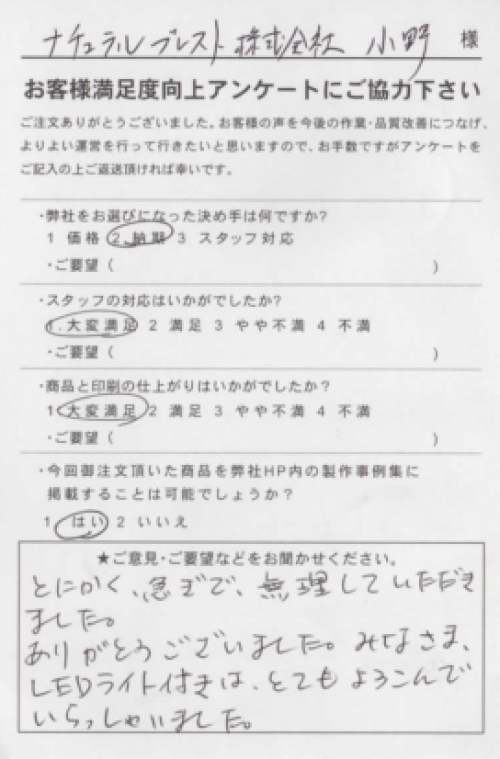 ナチュラルブレスト株式会社 小野 様
お客様満足度向上アンケートにご協力下さい
ご注文ありがとうございました。お客様の声を今後の作業・品質改善につなげ、
よりよい運営を行って行きたいと思いますので、お手数ですがアンケートを
ご記入の上ご返送頂ければ幸いです。
・弊社をお選びになった決め手は何ですか?
1 価格 2 納期 3 スタッフ対応
・ご要望 ( )
・スタッフの対応はいかがでしたか?
1 大変満足 2 満足 3 やや不満 4 不満
・ご要望 ( )
・商品と印刷の仕上がりはいかがでしたか?
1 大変満足 2 満足 3 やや不満 4 不満
・ご要望 ( )
・今回御注文頂いた商品を弊社HP内の製作事例集に
掲載することは可能でしょうか?
1 はい 2 いいえ
★ご意見・ご要望などをお聞かせください。
とにかく、急ぎで、無理していただき
ました。
ありがとうございました。みなさま、
LEDライト付きは、とてもよろこんで
いらっしゃいました。